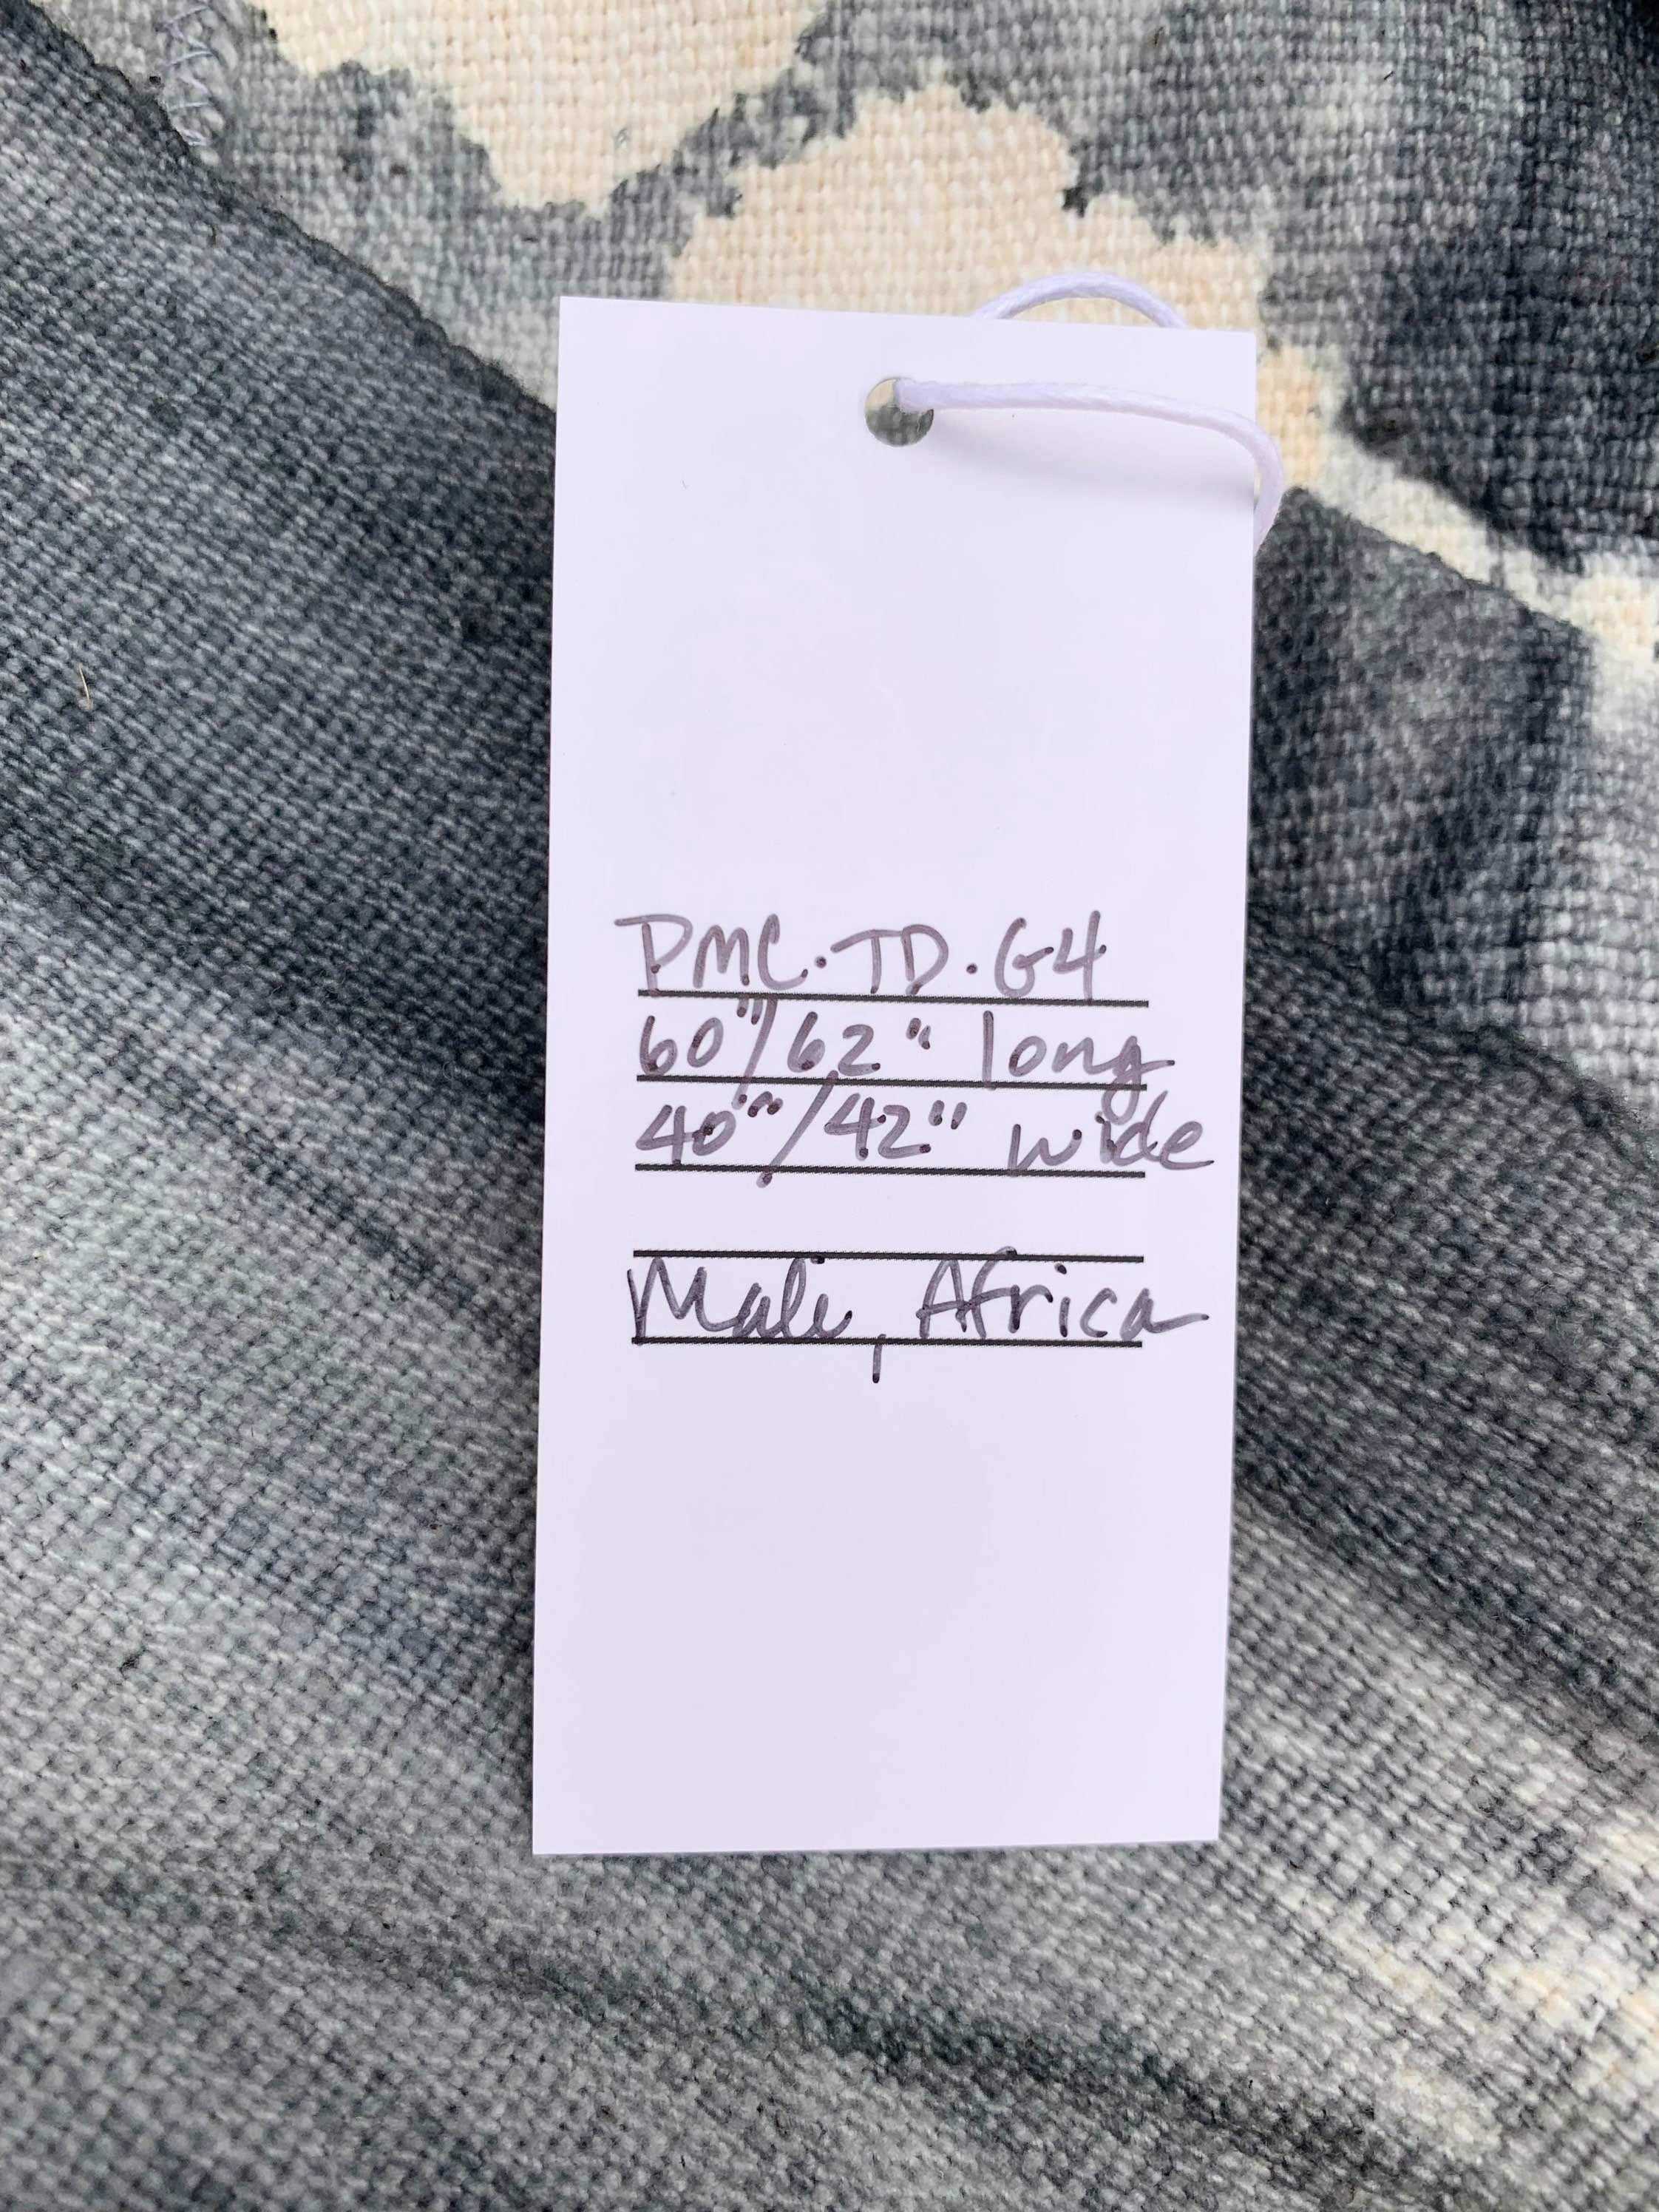 PMC.TD.G4
60"/62" long
40"/42" wide
Mali, Africa